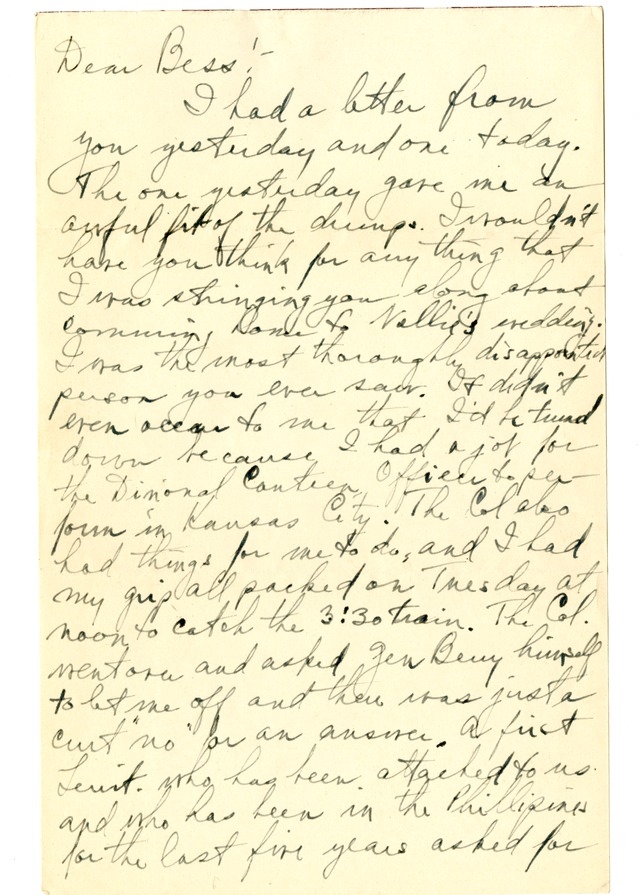 Dear Bess:-
I had a letter from
you yesterday and one today.
The one yesterday gave me an
awful fit of the dumps. I wouldn't
have you think for anything that
I was stringing you along about
comming home to Nellie's wedding.
I was the most thoroughly disappointed
person you ever saw. It didn't
even occur to me that I'd be turned
down because I had a job for
the Divional Canteen Officer to per-
form in Kansas City. The Col also
had things for me to do, and I had
my grip all packed on Tuesday at
noon to catch the 3:30 train. The Col.
went over and asked Gen Berry himself
to let me off and there was just a
curt "no" for an answer. A first
Leiut. who has been attached to us
and who has been in the Phillipines
for the last five years asked for